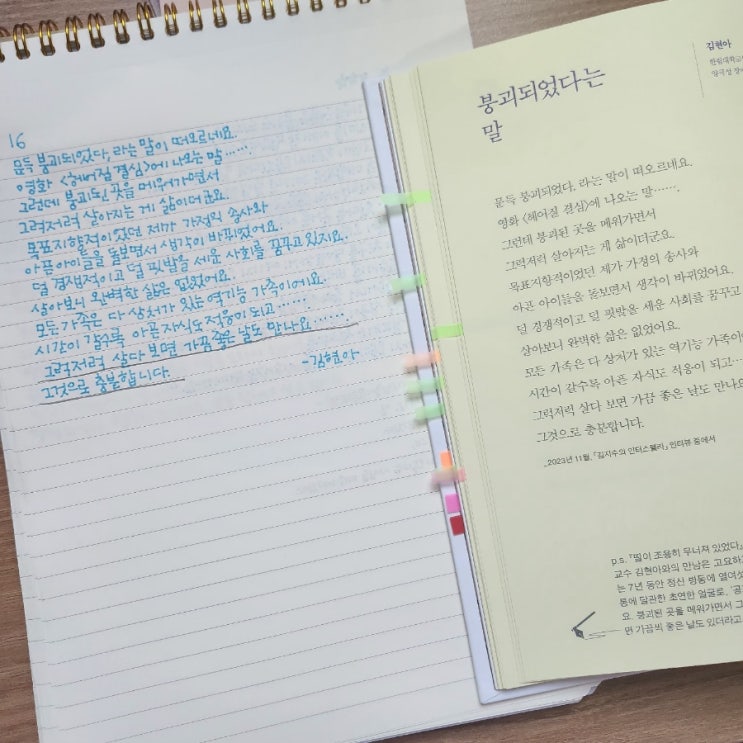 16
문득 붕괴되었다, 라는 말이 떠오르네요.
영화 <헤어질 결심>에 나오는 말……
그런데 붕괴된 곳을 메워가면서
그럭저럭 살아지는 게 삶이더군요.
목표지향적이었던 제가 가정의 송사와
아픈아이들을 돌보면서 생각이 바뀌었어요.
덜 경쟁적이고 덜 핏발을 세운 사회를 꿈꾸고 있지요.
살아보니 완벽한 삶은 없었어요.
모든가족은 다 상처가 있는 역기능 가족이에요.
시간이 갈수록 아픈 자식도 적응이 되고……
그럭저럭 살다 보면 가끔좋은 날도 만나요……
그것으로 충분합니다.
-김현아
김현아
한림대학교
붕괴되었다는
말
문득 붕괴되었다, 라는 말이 떠오르네요.
영화 〈헤어질 결심〉에 나오는 말…….
그런데 붕괴된 곳을 메워가면서
그럭저럭 살아지는 게 삶이더군요.
목표지향적이었던 제가 가정의 송사와
아픈 아이들을 돌보면서 생각이 바뀌었어요.
덜 경쟁적이고 덜 핏발을 세운 사회를 꿈꾸고
살아보니 완벽한 삶은 없었어요.
모든 가족은 다 상처가 있는 역기능 가족이
시간이 갈수록 아픈 자식도 적응이 되고…
그럭저럭 살다 보면 가끔 좋은 날도 만나요
그것으로 충분합니다.
_2023년 11월, 「김지수의 인터스텔라」 인터뷰 중에서
p.s. 『딸이 조용히 무너져 있었다』
교수 김현아와의 만남은 고요하
는 7년 동안 정신 병동에 열여섯
통에 달관한 초연한 얼굴로, '공
요. 붕괴된 곳을 메워가면서 그
면 가끔씩 좋은 날도 있더라고